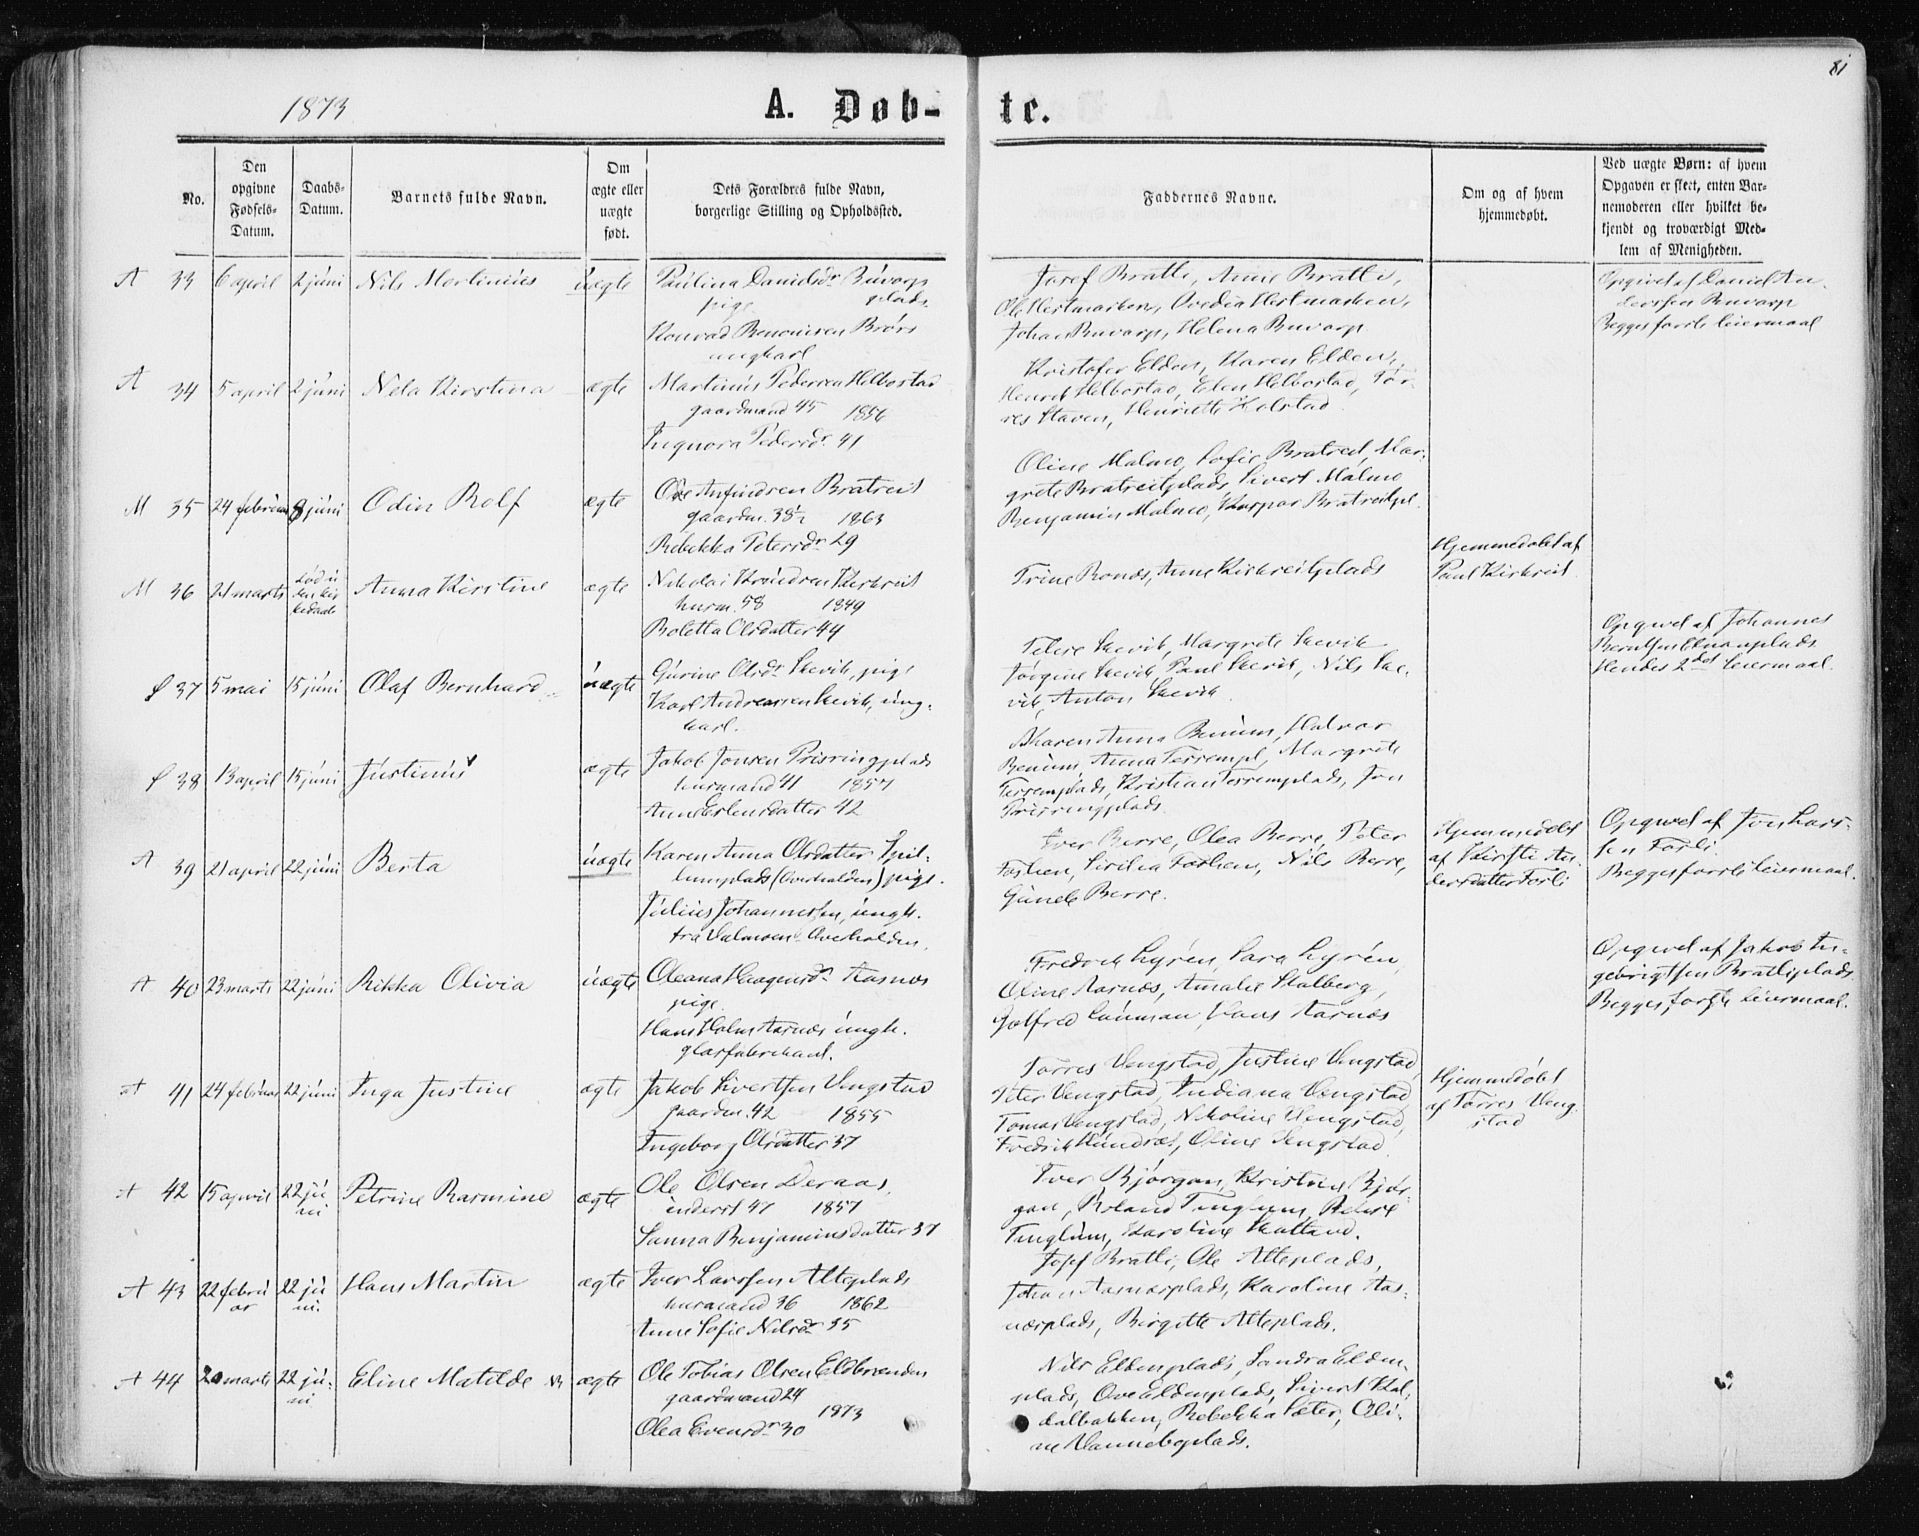 81
1873
A. Døb-
te.
No.
Den
opgivne
Fødsels-
Datum.
Daabs-
Datum.
Barnets fulde Navn.
Om
ægte eller
uægte
født.
Dets Forældres fulde Navn,
borgerlige Stilling og Opholdssted.
Faddernes Navne.
Om og af hvem
hjemmedøbt.
Ved uægte Børn: af hvem
Opgaven er skeet, enten Bar-
nemoderen eller hvilket be-
kjendt og troværdigt Med-
lem af Menigheden.
A 33 6 april 2 juni Nils Martinius uægte
Paulina Danielsdr Buvarp
pige plads.
Konrad Benonisen Brørs
ungkarl
Josef Bratli, Anne Bratli,
Ole Hestmarken, Ovedia Hestmarken,
Johan Buvarp, Helena Buvarp
Opgivet af Daniel An-
derssen Buvarp
Begges første leiermaal
A 34 5 april 2 juni Nela Kirstina ægte
Martinus Pedersen Helbostad
gaardmand 45 1856
Ingnora Pedersdr 41
Kristofer Elden, Karen Elden,
Henrik Helbostad, Elen Helbostad, Tør-
res Staven, Henriette Kolstad
M 35 24 februar 8 juni Odin Rolf ægte
Ole Anfindsen Bratreit
gaardm. 38½ 1863
Rebekka Petersdr 29
Oline Malmo, Sofie Bratreit, Mar-
grete Bratreitplads, Sivert Malmo
Benjamin Malmo, Kaspar Bratreitpl.
M 36 21 marts død u-
den kir-
kedaab Anna Kirstine ægte
Nikolai Kirkreit
husm. 58 1849
Boletta Olsdatter 44
Trine Ronæs, Anne Kirkreitplads
Hjemmedøbt af
Paul Kirkreit.
Ø 37 5 mai 15 juni Olaf Bernhard uægte
Gurine Olsdr Skevik, pige
Karl Andreassen Skevik, ung-
karl.
Petere Skevik, Margrete Skevik
Jørgine Skevik, Paul Skevik, Nils Ske-
vik, Anton Skevik.
Opgivet af Johannes
Berntsen
Hendes 2det leiermaal.
Ø 38 13 april 15 juni Justinus ægte
Jakob Jonsen Prisringplads
husmand 41 1857
Anne Estensdatter 42
Karen Anna Benum, Halvor
Benum, Anna Terrempl, Margrete
Terremplads, Kristian Terremplads, Jon
Prisringplads.
A 39 21 april 22 juni Berta uægte
Karen Anna Olsdatter Spil-
lumplads (Overhalden) pige.
Julius Johannessen, ungk.
fra Valmoen Overhalden.
Iver Berre, Olea Berre, Peter
Foshen, Sirilia Foshen, Nils Berre,
Gunele Berre.
Hjemmedøbt
af Kirsti An-
dersdatter Forli
Opgivet af Jon Lars-
sen Forli.
Begges første leiermaal.
A 40 23 marts 22 juni Rikka Olivia uægte
Oleana Haagensdr Aasnes
pige.
Hans Holm Aarnæs ungk.
glasfabrikant.
Fredrik Lyrén, Sara Lyrén,
Oline Aarnæs, Amalie Stalberg,
Gotfred Lauman, Hans Aarnæs
Opgivet af Jakob In-
gebrigtsen Bratliplads
Begges første leiermaal.
A 41 24 februar 22 juni Inga Justine ægte
Jakob Sivertsen Vengstad
gaardm. 42 1855
Ingeborg Olsdatter 37
Tørres Vengstad, Justine Vengstad,
Peter Vengstad, Indiana Vengstad
Tomas Vengstad, Nikoline Vengstad,
Fredrik Hundsæt, Oline Vengstad.
Hjemmedøbt
af Tørres Veng-
stad
A 42 15 april 22 ju-
ni Petrine Rasmine ægte
Ole Olsen Deraas,
inderst 47 1857
Sanna Benjaminsdatter 37
Iver Bjørgan, Kristine Bjør-
gan, Roland Tinglum,
Tinglum, Karoline Hatland.
A 43 22 febru
ar 22 ju
ni. Hans Martin ægte
Iver Larssen Alteplads
husmand 36 1862
Anne Sofie Nilsdr 35
Josef Bratli, Ole Alteplads,
Johan Aasnæsplads, Karoline Aas-
næsplads, Birgitte Alteplads.
A 44 20 marts 22 ju-
ni Eline Matilde ægte
Ole Tobias Olsen Eldbrenden
gaardmand 24
1873
Olea Evensdr 30
Nils Eldenplads, Sandra Elden-
plads, Ove Eldenplads, Sivert Kal-
dalbakken, Rebekka Sæter, Oli-
ne Vanneboplads.